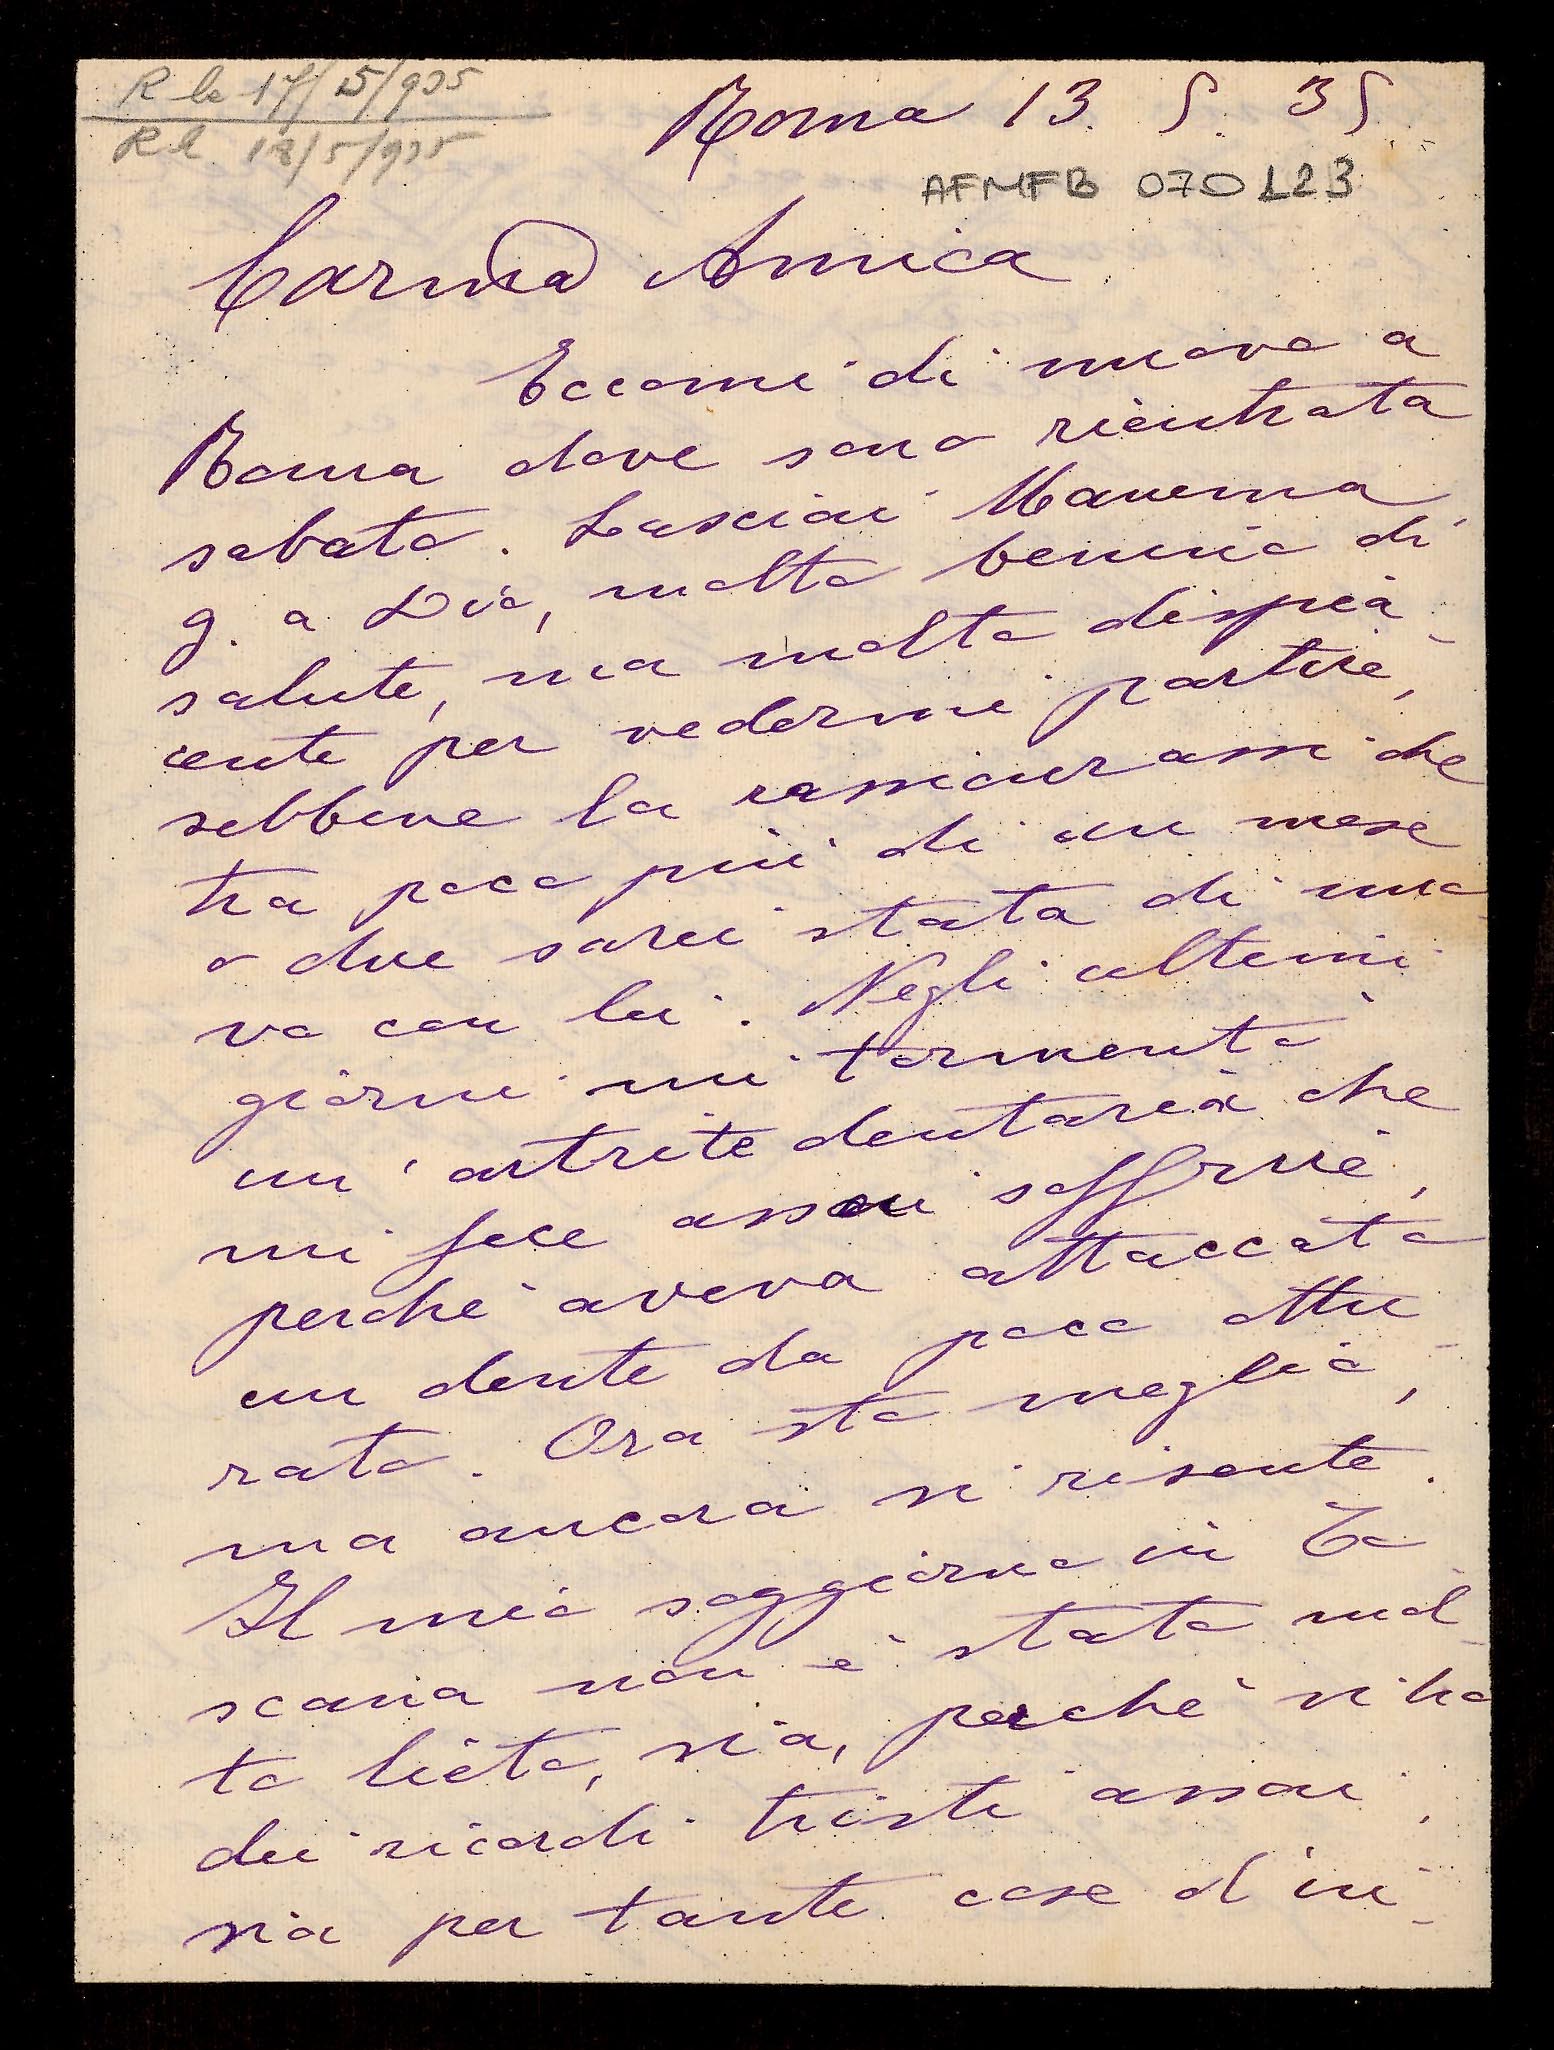 R le 17/5/935
R l. 18/5/935
Roma 13. 5. 35
AFMFB 070 L23
Carma Amica
Eccomi di nuovo a
Roma dove sono rientrata
sabato. Lasciai Mamma
g. a Dio, molto benino di
salute, ma molto dispia-
cente per vedermi partire,
sebbene la rassicurassi che
tra poco più di un mese
o due sarei stata di nuo-
vo con lei. Negli ultimi
giorni mi tormentò
un'artrite dentaria che
mi fece assai soffrire,
perché aveva attaccato
un dente da poco ottu-
rato. Ora sto meglio,
ma ancora si risente.
Il mio soggiorno in To
scana non è stato mol-
to lieto, sia, perché vi ho
dei ricordi tristi assai,
sia per tante cose d'in-